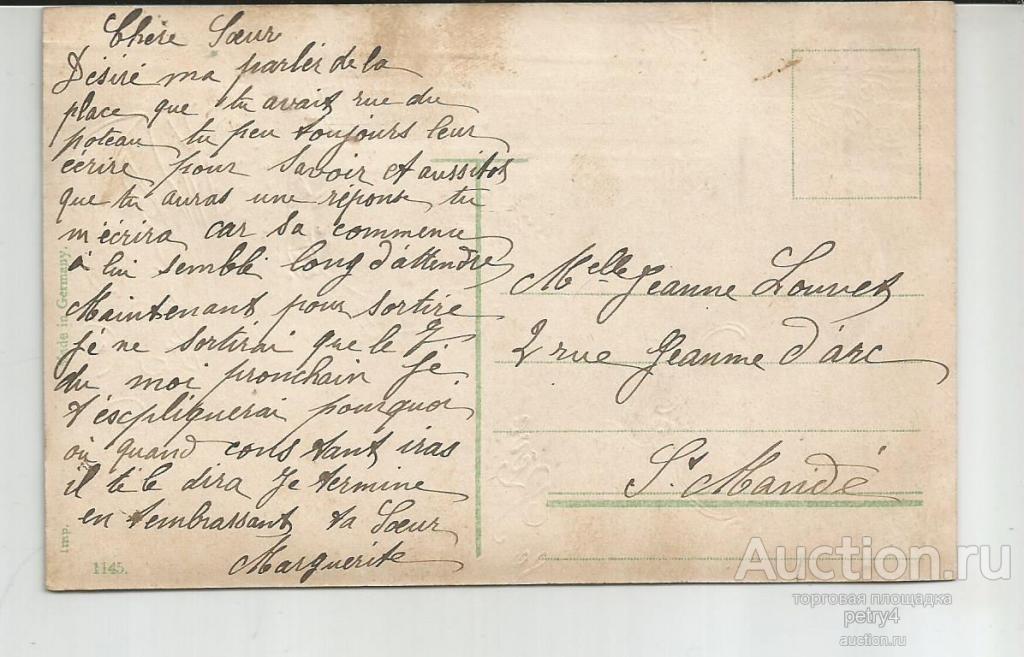 Chère Sœur
Désiré ma parlér de la
place que tu avait rue du
poteau tu peu toujours leur
écrire pour savoir et aussitot
que tu auras une réponse tu
m'écrira car sa commence
à lui semblé long d'attendre
Maintenant pour sortire
je ne sortirai que le 7
du moi pronchain je
t'escpliquerai pourquoi
où quand cons tant iras
il te le dira Je termine
en tembrassant ta Sœur
Marguerite
Melle Jeanne Louvet
2 rue Jeanne d'arc
St Mandé
Made in Germany.
Imp.
1145.
Auction.ru
торговая площадка
petry4
auction.ru